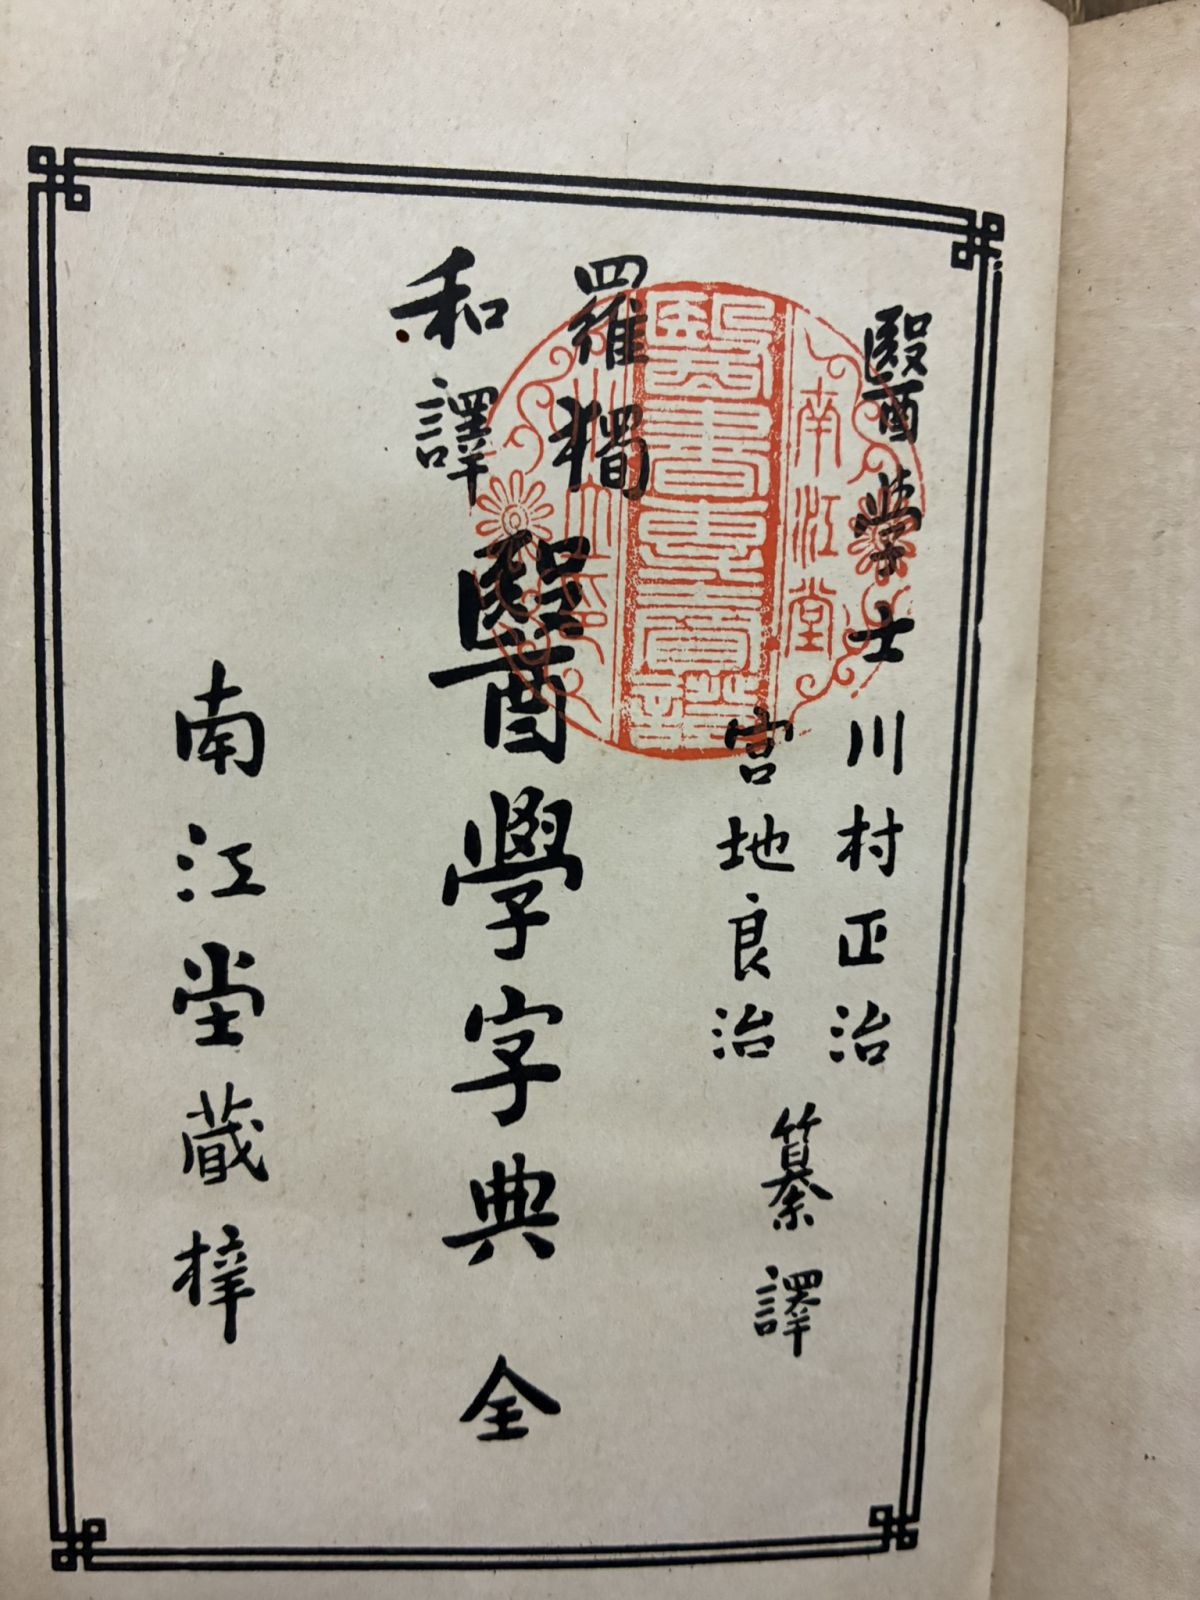 醫學士
川村正治
宮地良治
纂譯
羅獨
和譯
醫學字典 全
南江堂藏梓
南江堂
醫書專賣